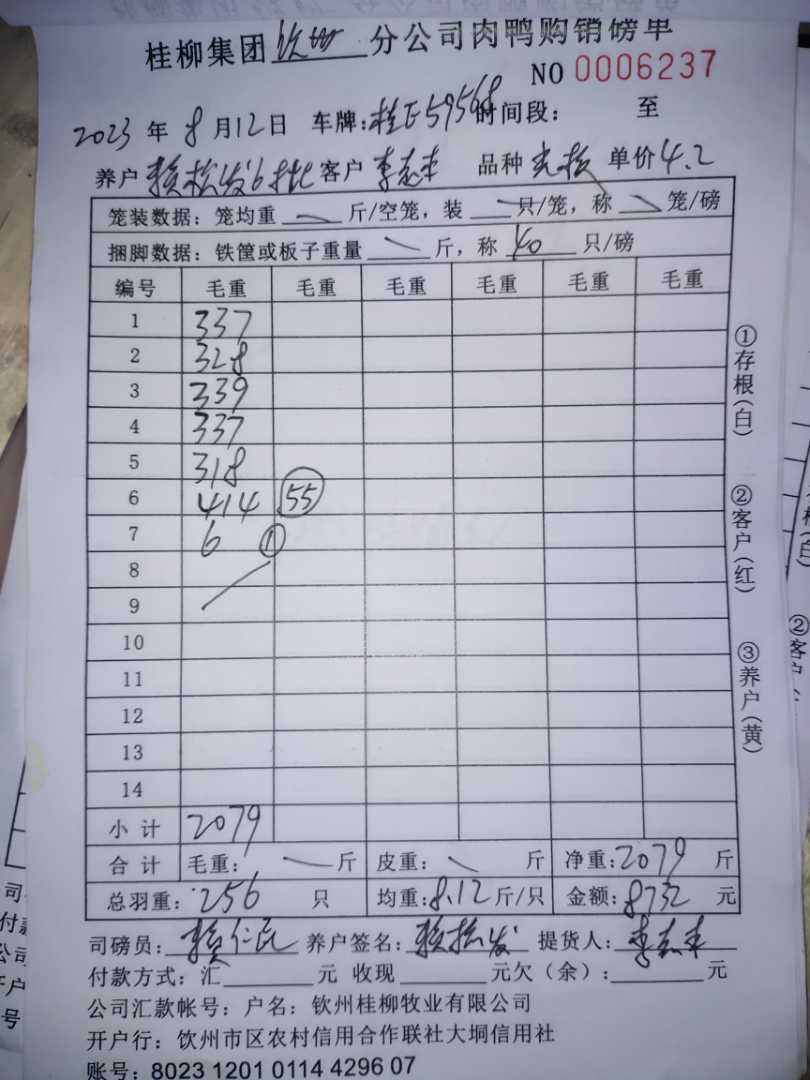 桂柳集团 钦州 分公司肉鸭购销磅单
NO 0006237
2023 年 8 月 12 日 车牌: 桂E59568 时间段: 至
养户 赖松发6批 客户 李志丰 品种 单价 4.2
笼装数据: 笼均重 斤/空笼, 装 只/笼, 称 笼/磅
捆脚数据: 铁筐或板子重量 斤, 称 40 只/磅
编号 毛重 毛重 毛重 毛重 毛重 毛重
1 337
2 328
3 339
4 337
5 318
6 414 55
7 6 ①
8
9
10
11
12
13
14
小计 2079
合计 毛重: 斤 皮重: 斤 净重: 2079 斤
总羽重: 256 只 均重: 8.12 斤/只 金额: 8732 元
司磅员: 赖仁民 养户签名: 赖松发 提货人: 李志丰
付款方式: 汇 元 收现 元欠(余): 元
公司汇款帐号: 户名: 钦州桂柳牧业有限公司
开户行: 钦州市区农村信用合作联社大垌信用社
账号: 8023 1201 0114 4296 07
①存根(白)
②客户(红)
③养户(黄)